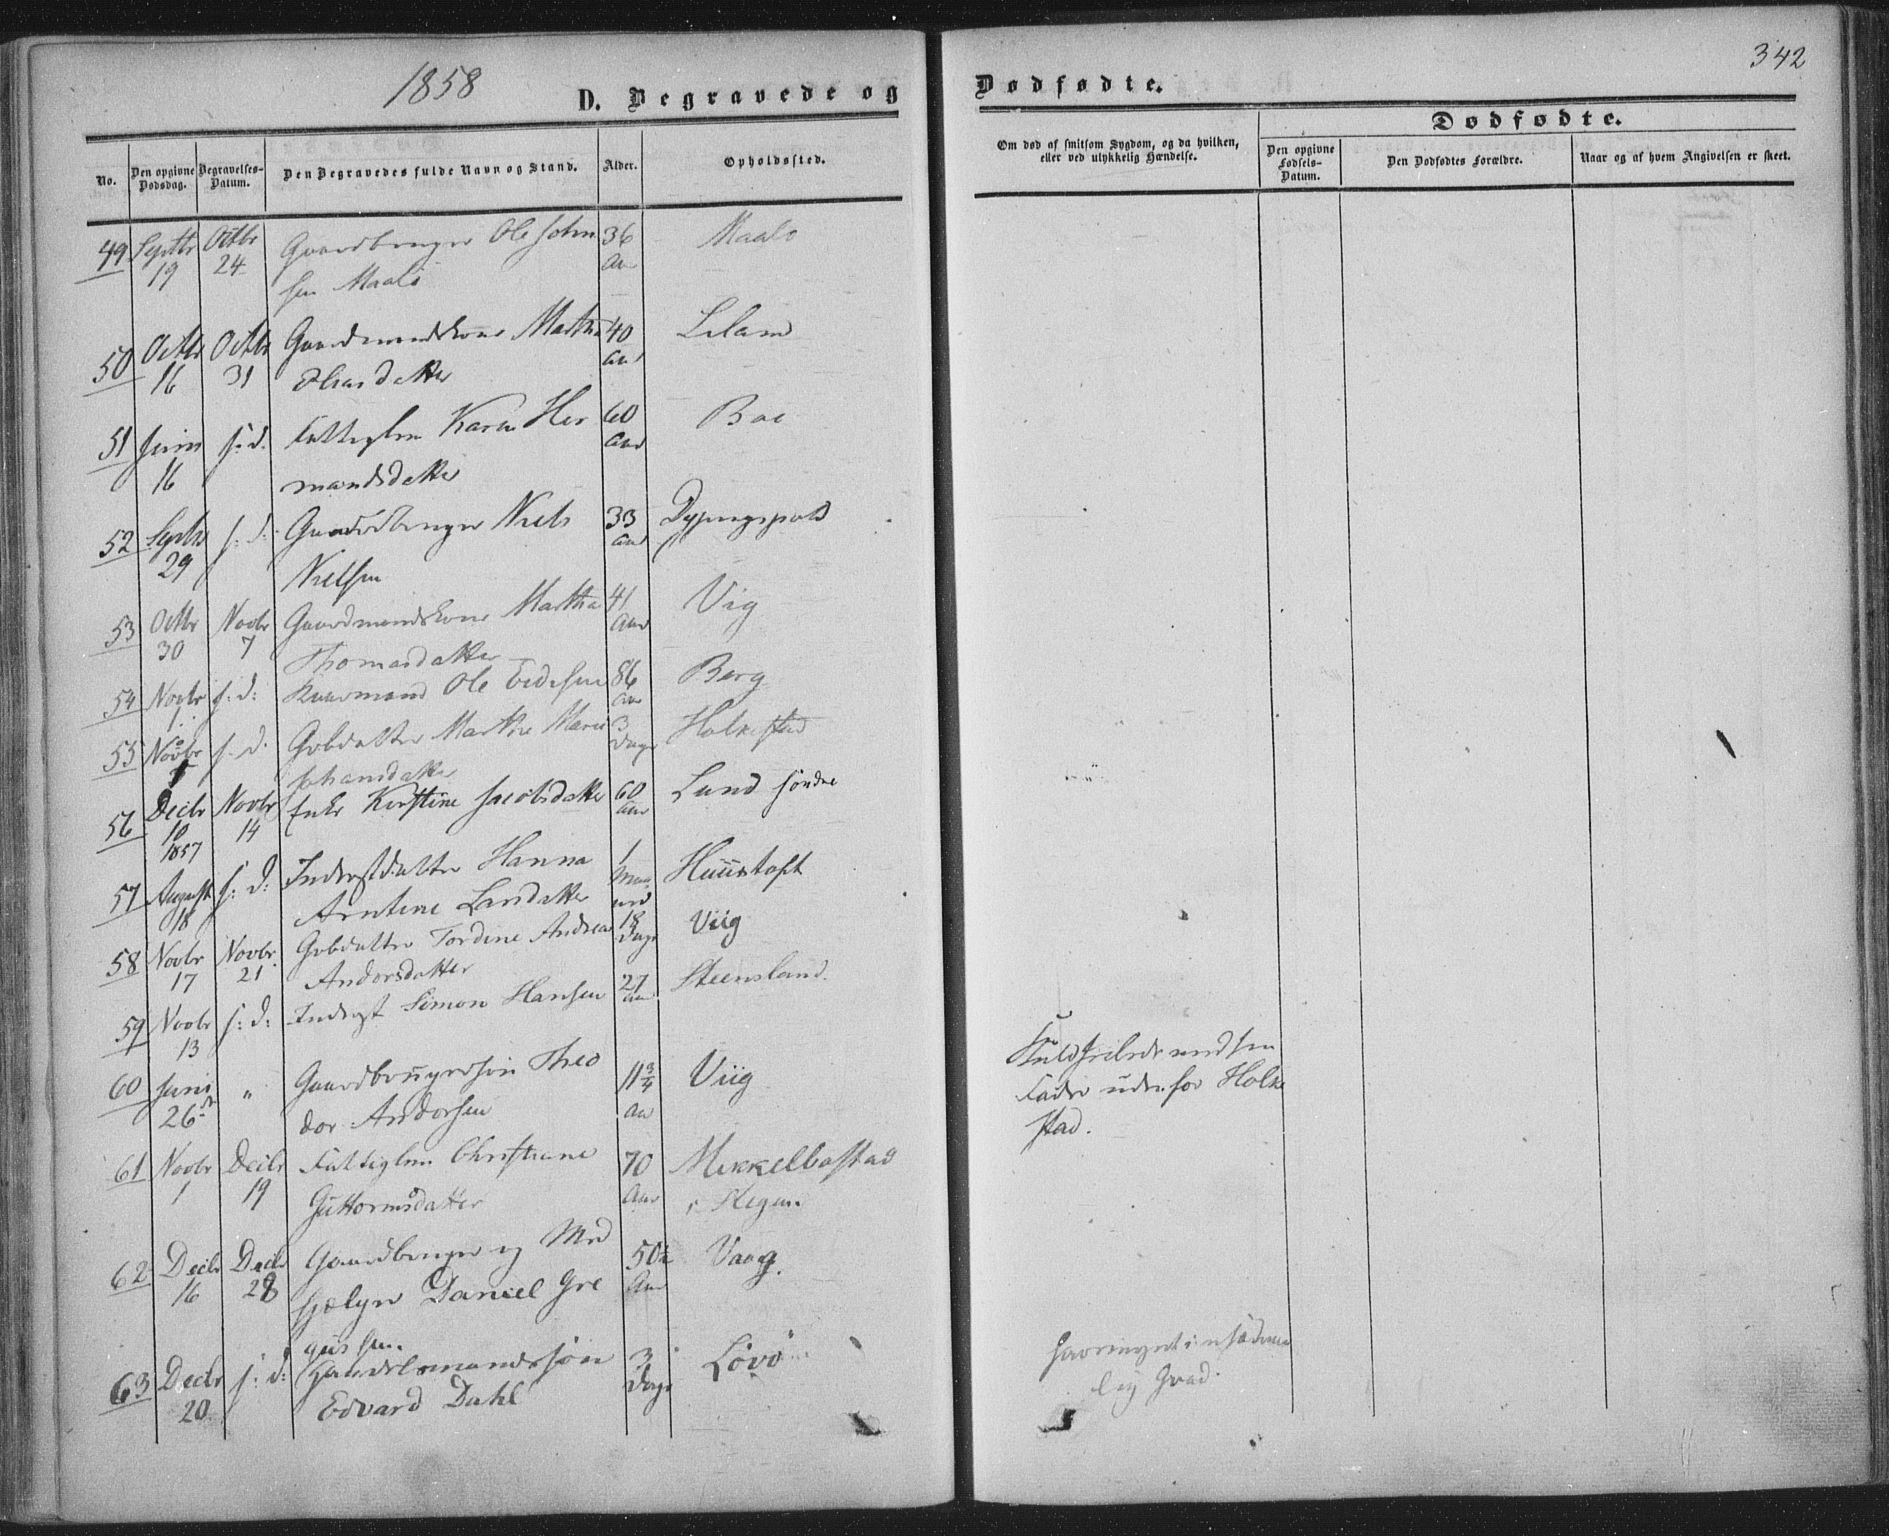 1858
D. Begravede og
Dødfødte.
342
No.
Den opgivne Dødsdag.
Begravelses-Datum.
Den Begravedes fulde Navn og Stand.
Alder.
Opholdssted.
Om død af smitsom Sygdom, og da hvilken, eller ved ulykkelig Hændelse.
Dødfødte.
Den opgivne Fødsels-Datum.
Den Dødfødtes Forældre.
Naar og af hvem Angivelsen er skeet.
49 Septbr Octbr Gaardbruger Ole John 36 Maalö
19 24 sen Maalö Aar
50 Octbr Octbr Gaardmandskone Martha 40
16 31 Olsdatter Aar
51 Juni s: d. Fattiglem Karen Her 60 Boe
16 mandsdatter Aar
52 Septbr s: d: Gaardbruger Niels 33
29 Nielsen Aar
53 Octbr Novbr Gaardmandskone Martha 41 Vig
30 7 Thomasdatter Aar
54 Novbr s: d: Ole 86 Berg
1 Aar
55 Novbr s: d. Gbdatter Marthe Marie 3 Holkestad
Johansdatter Dage
56 Decbr Novbr Enke Kirstine Jacobsdatter 60 Lund söndre
10 14 Aar
1857
57 August s: d: Inderstdatter Hanna 1
18 Arntine Larsdatter Maaned
58 Novbr Novbr. Gbdatter Tordine Andrea 18 Viig
17 21 Andorsdatter Dage
59 Novbr s: d: Inderst Simon Hansen 27 Steensland.
13 Aar
60 Juni " Gaardbrugersön Theo 11¾ Viig
26 dor Andorsen Aar
med sin
Fader udenfor Holke
stad.
61 Novbr Decbr Fattiglem Christiane 70 Mikkelbostad
1 19 Guttormsdatter Aar i Stegen.
62 Decbr Decbr Gaardbruger og Med 50½ Vaag.
16 28 hjælper Daniel Gre Aar
gussen.
63 Decbr s: d: Handelsmandssön 3 Lövö
20 Edvard Dahl Dage
lig Grad.